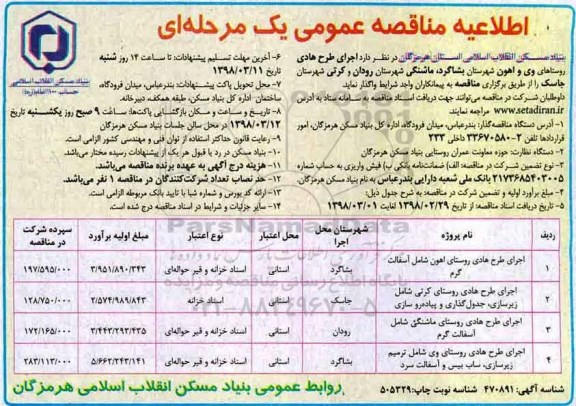 اطلاعیه مناقصه عمومی یک مرحله‌ای
بنیاد مسکن انقلاب اسلامی
حساب ۱۰۰ امام(ره)
بنیاد مسکن انقلاب اسلامی استان هرمزگان در نظر دارد اجرای طرح هادی
روستاهای وی و اهون شهرستان بشاگرد، ماشنگی شهرستان رودان و کرتی شهرستان
جاسک را از طریق برگزاری مناقصه به پیمانکاران واجد شرایط واگذار نماید.
داوطلبان شرکت در مناقصه می‌توانند جهت دریافت اسناد مناقصه به سامانه ستاد به آدرس
www.setadiran.ir مراجعه نمایند.
۱- آدرس دستگاه مناقصه‌گذار: بندرعباس، میدان فرودگاه، اداره کل بنیاد مسکن هرمزگان، امور
قراردادها تلفن ۲-۳۳۶۷۰۵۸۰ داخلی ۲۳۳
۲- دستگاه نظارت: حوزه معاونت عمران روستایی بنیاد مسکن هرمزگان
۳- نوع تضمین شرکت در مناقصه: اصل (ضمانتنامه بانکی یا فیش واریزی به حساب شماره
۲۱۷۳۶۸۵۴۰۳۰۰۵ بانک ملی شعبه دارایی بندرعباس به نام بنیاد مسکن هرمزگان.
۴- مبلغ برآورد اولیه و تضمین شرکت در مناقصه: به شرح جدول ذیل:
۵- تاریخ دریافت اسناد مناقصه: از تاریخ ۱۳۹۸/۰۲/۲۹ لغایت ۱۳۹۸/۰۳/۰۱
۶- آخرین مهلت تسلیم پیشنهادات: تا ساعت ۱۴ روز شنبه
تاریخ ۱۳۹۸/۰۳/۱۱
۷- محل تحویل پاکت پیشنهادات: بندرعباس، میدان فرودگاه،
ساختمان اداره کل بنیاد مسکن، طبقه همکف، دبیرخانه.
۸- تاریخ و ساعت و مکان بازگشایی پاکت‌ها: ساعت ۹ صبح روز یکشنبه تاریخ
۱۳۹۸/۰۳/۱۲ در محل سالن جلسات بنیاد مسکن هرمزگان
۹- رعایت قانون حداکثر استفاده از توان فنی و مهندسی کشور الزامی است.
۱۰- بنیاد مسکن در رد یا قبول هر یک از پیشنهادات رسیده مختار می‌باشد.
۱۱- هزینه درج آگهی به عهده برنده مناقصه می‌باشد.
۱۲- حد نصاب تعداد شرکت‌کنندگان در مناقصه ۱ نفر می‌باشد.
۱۳- ارائه کد بورس و شماره شبا با تایید بانک مربوطه الزامی است.
۱۴- سایر جزئیات و شرایط در اسناد مناقصه درج شده است.
ردیف نام پروژه شهرستان محل اجرا محل اعتبار نوع اعتبار مبلغ اولیه برآورد سپرده شرکت در مناقصه
۱ اجرای طرح هادی روستای اهون شامل آسفالت گرم بشاگرد استانی اسناد خزانه و قیر حواله‌ای ۳/۹۵۱/۸۹۰/۳۴۳ ۱۹۷/۵۹۵/۰۰۰
۲ اجرای طرح هادی روستای کرتی شامل زیرسازی، جدول‌گذاری و پیاده‌رو سازی جاسک استانی اسناد خزانه ۲/۵۷۴/۹۸۹/۸۴۳ ۱۲۸/۷۵۰/۰۰۰
۳ اجرای طرح هادی روستای ماشنگی شامل آسفالت گرم رودان استانی اسناد خزانه و قیر حواله‌ای ۳/۴۴۳/۲۹۳/۴۳۵ ۱۷۲/۱۶۵/۰۰۰
۴ اجرای طرح هادی روستای وی شامل ترمیم زیرسازی، ساب بیس و آسفالت سرد بشاگرد استانی اسناد خزانه و قیر حواله‌ای ۵/۶۶۲/۲۴۳/۱۴۱ ۲۸۳/۱۱۳/۰۰۰
شناسه آگهی: ۴۷۰۸۹۱ شناسه نوبت چاپ: ۵۰۵۳۲۹
روابط عمومی بنیاد مسکن انقلاب اسلامی هرمزگان